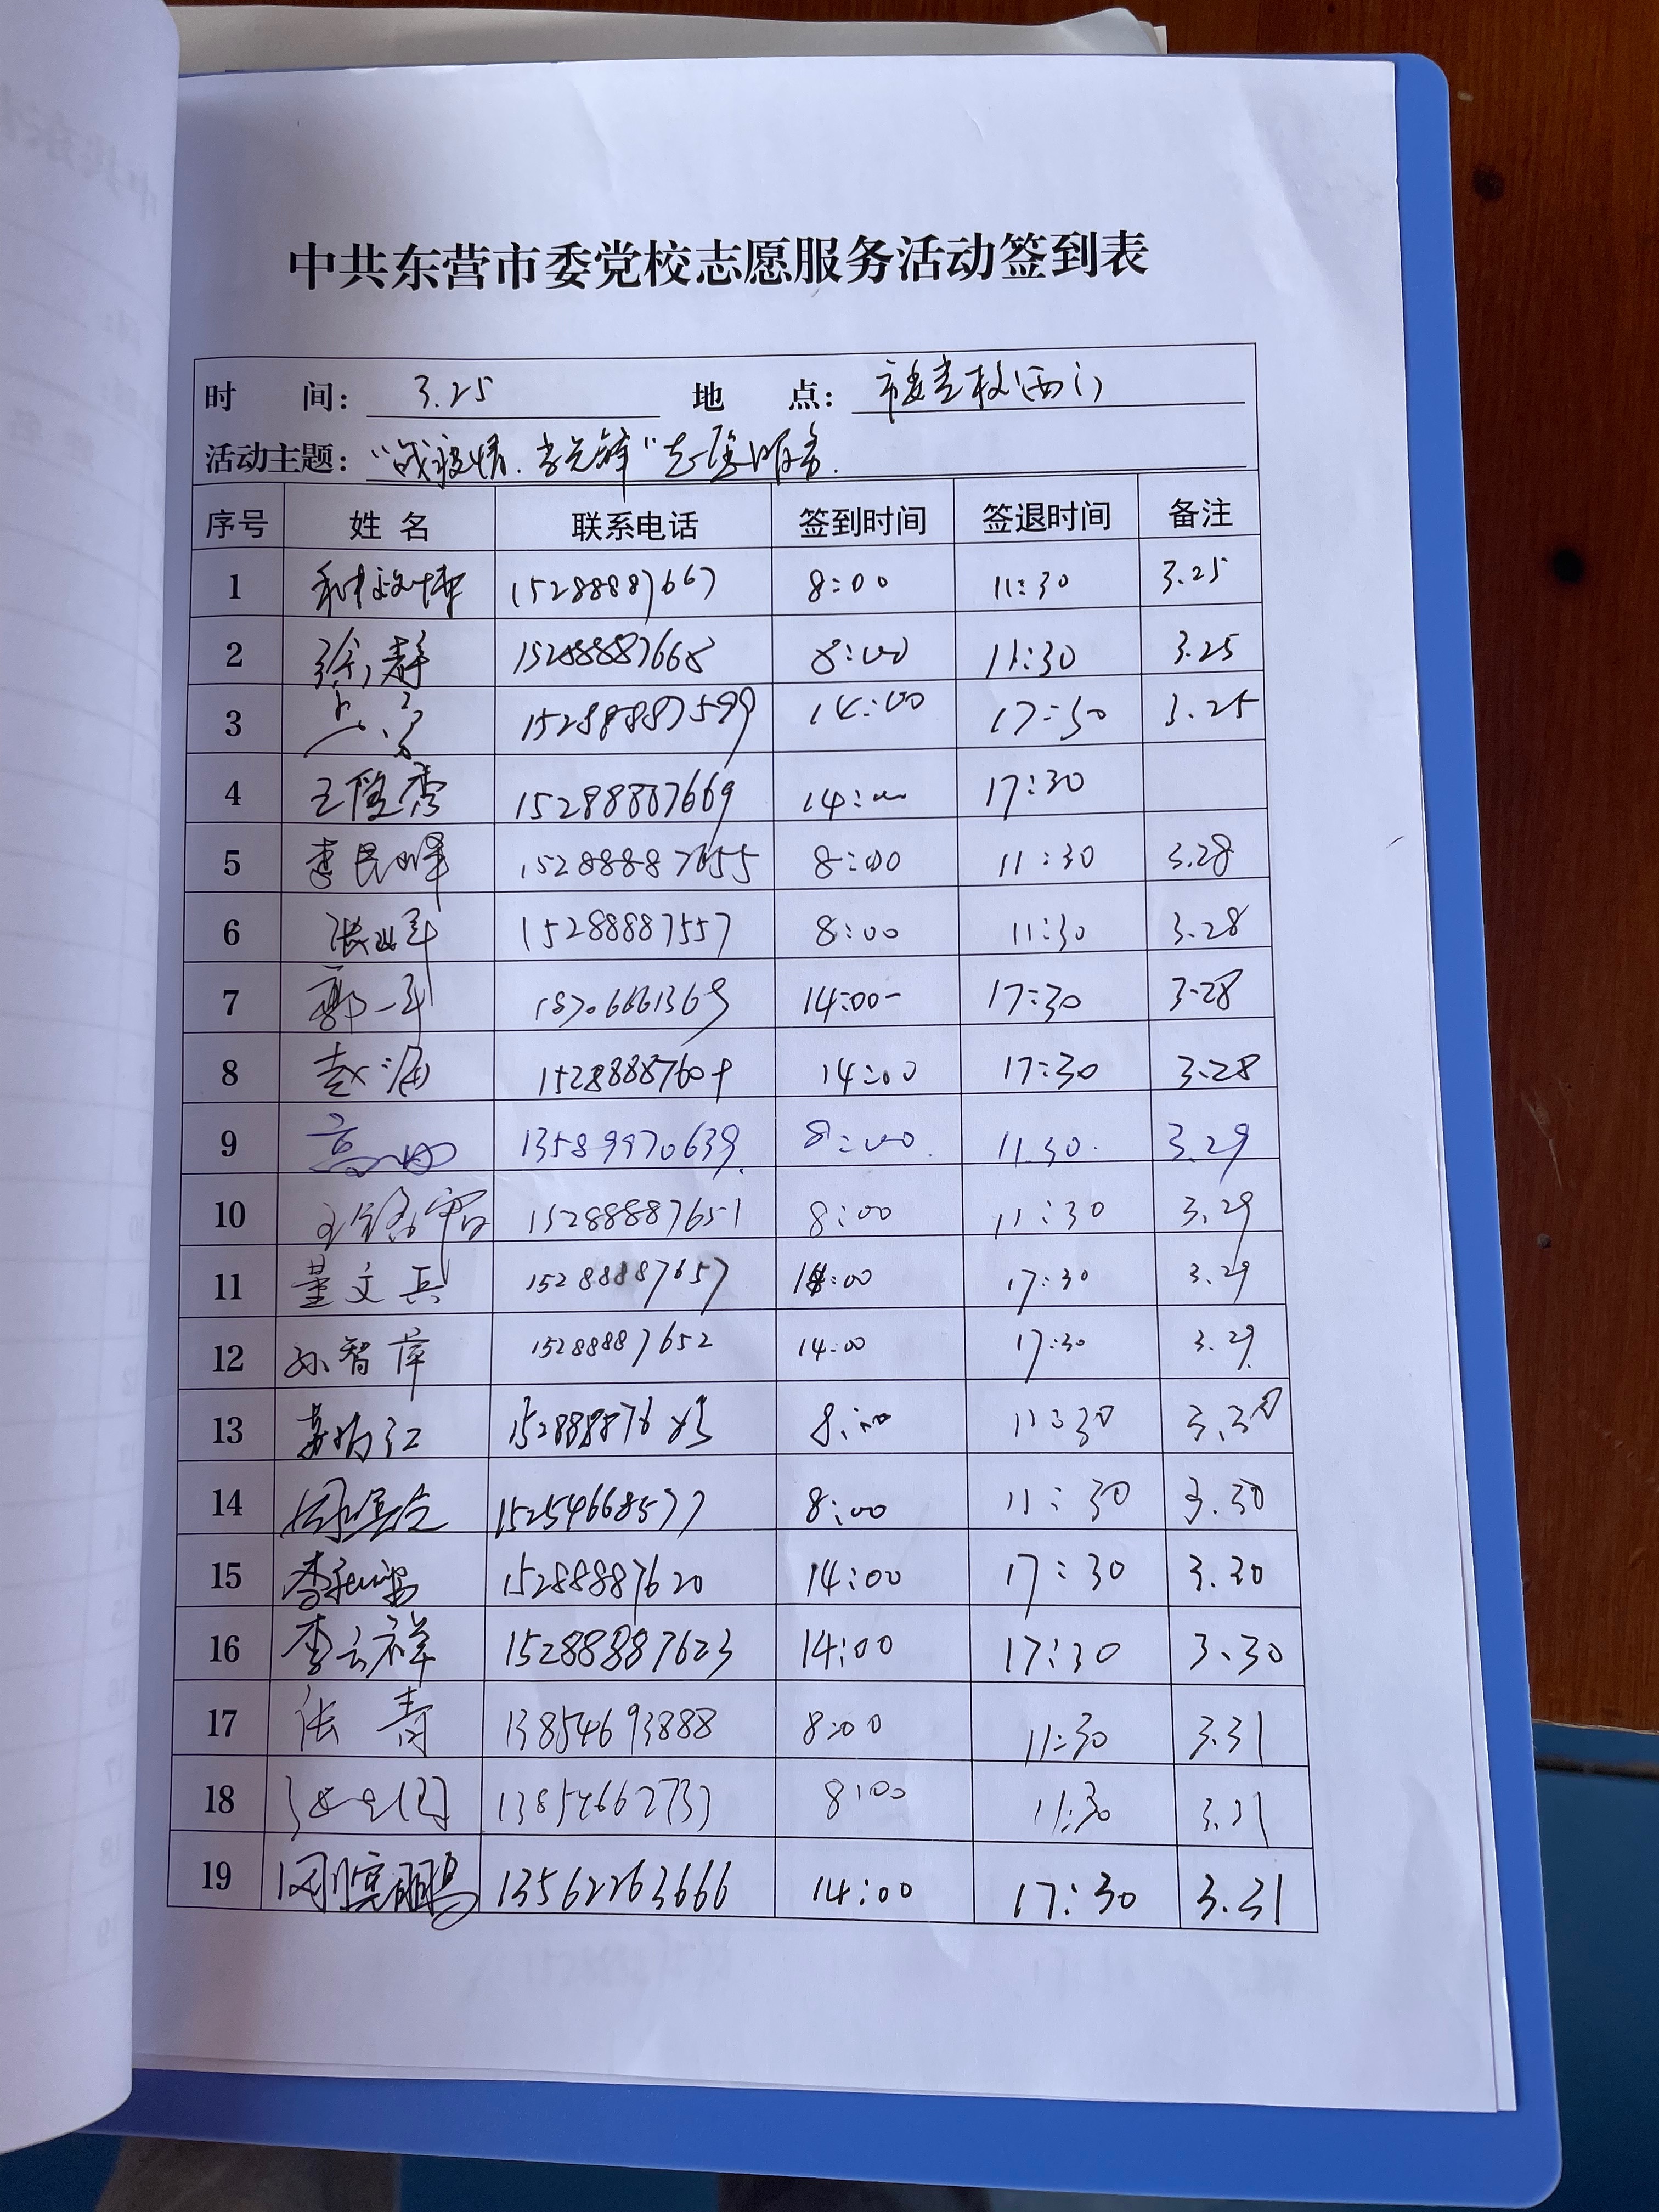 中共东营市委党校志愿服务活动签到表
时 间: 3.25 地 点: 市委党校(西门)
活动主题: “战疫情.当先锋”志愿服务.
序号 姓名 联系电话 签到时间 签退时间 备注
1 15288887667 8:00 11:30 3.25
2 徐静 15288887668 8:00 11:30 3.25
3 15288887599 14:00 17:30 3.25
4 王隆秀 15288887669 14:00 17:30
5 李民峰 15288887655 8:00 11:30 3.28
6 15288887557 8:00 11:30 3.28
7 郭一军 14:00- 17:30 3.28
8 赵海 14:00 17:30 3.28
9 13589970639. 8:00. 11.30. 3.29
10 15288887651 8:00 11:30 3.29
11 董文兵 15288887657 14:00 17:30 3.29
12 孙智萍 15288887652 14:00 17:30 3.29
13 8:00 11:30 3.30
14 15254668577 8:00 11:30 3.30
15 15288887620 14:00 17:30 3.30
16 李云祥 15288887623 14:00 17:30 3.30
17 张青 13854693888 8:00 11:30 3.31
18 13854662733 8:00 11:30 3.31
19 13562263666 14:00 17:30 3.31